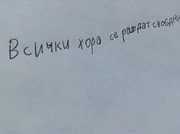 Всички хора се раждат свободни